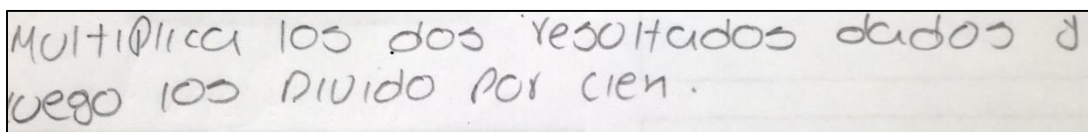 Multiplica los dos resoltados dados y
luego los Divido por cien.